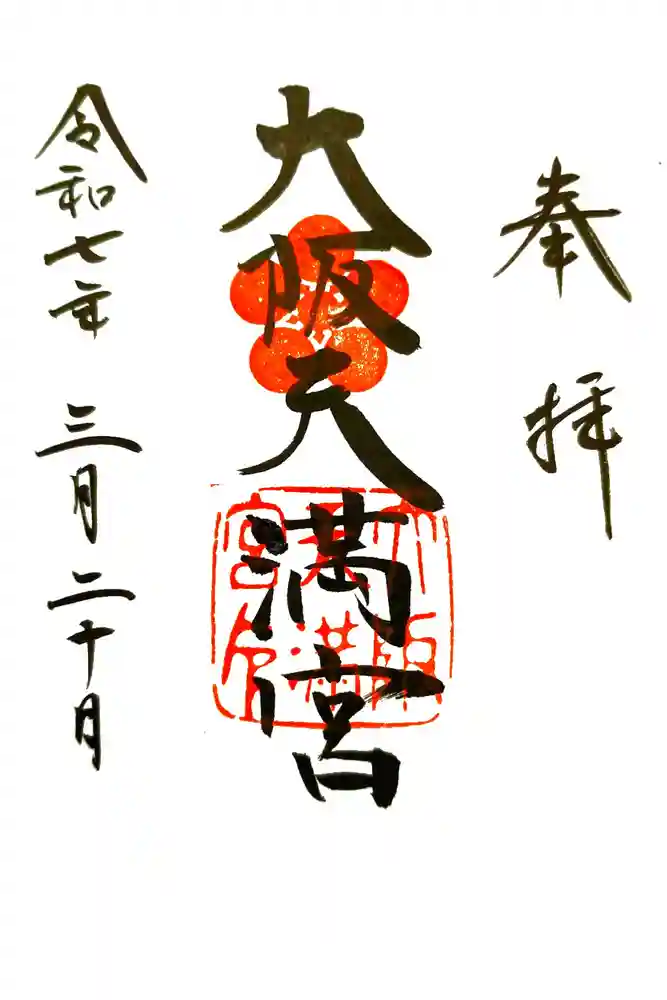 奉拝
大阪天満宮
大阪
天満
令和七年 三月二十日